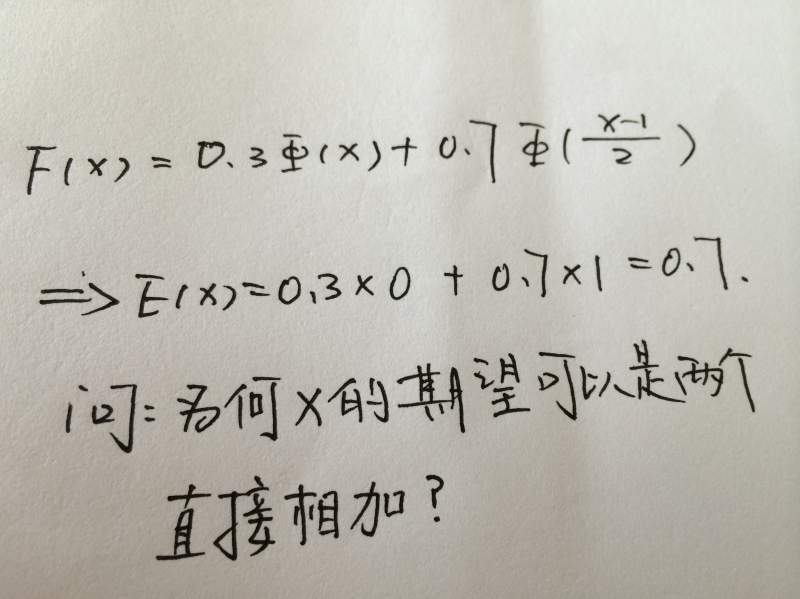 F(x) = 0.3Φ(x) + 0.7Φ(\frac{x-1}{2})
⇒ E(x) = 0.3 × 0 + 0.7 × 1 = 0.7.
问: 为何X的期望可以是两个
直接相加?